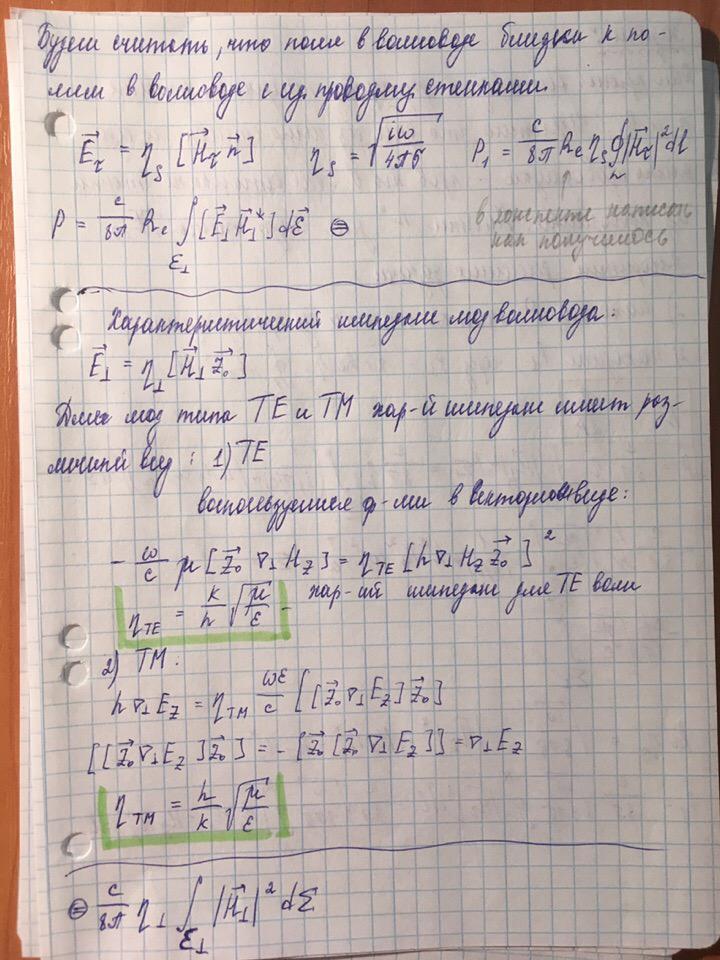 Будем считать, что поля в волноводе близки к по-
лям в волноводе с ид. проводящ. стенками.
E⃗_τ = η_s [H⃗_τ n⃗]   η_s = √(iω/4πσ)   P₁ = c/8π Re η_s ∮|H⃗_τ|² dl
P = c/8π Re ∫_{Σ⊥} [E⃗⊥ H⃗⊥*] dΣ⃗ ⊜
в конспекте написано
как получилось
Характеристический импеданс мод волновода:
E⃗⊥ = η⊥ [H⃗⊥ z⃗₀]
Для мод типа TE и TM хар-й импеданс имеет раз-
личный вид: 1) TE
воспользуемся ф-ми в векторном виде:
- ω/c μ [z⃗₀ ∇⊥ H_z] = η_TE [h ∇⊥ H_z z⃗₀]²
η_TE = k/h √(μ/ε) - хар-ий импеданс для TE волн
2) TM:
h ∇⊥ E_z = η_TM ωε/c [[z⃗₀ ∇⊥ E_z] z⃗₀]
[[z⃗₀ ∇⊥ E_z] z⃗₀] = - [z⃗₀ [z⃗₀ ∇⊥ E_z]] = ∇⊥ E_z
η_TM = h/k √(μ/ε)
⊜ c/8π η⊥ ∫_{Σ⊥} |H⃗⊥|² dΣ